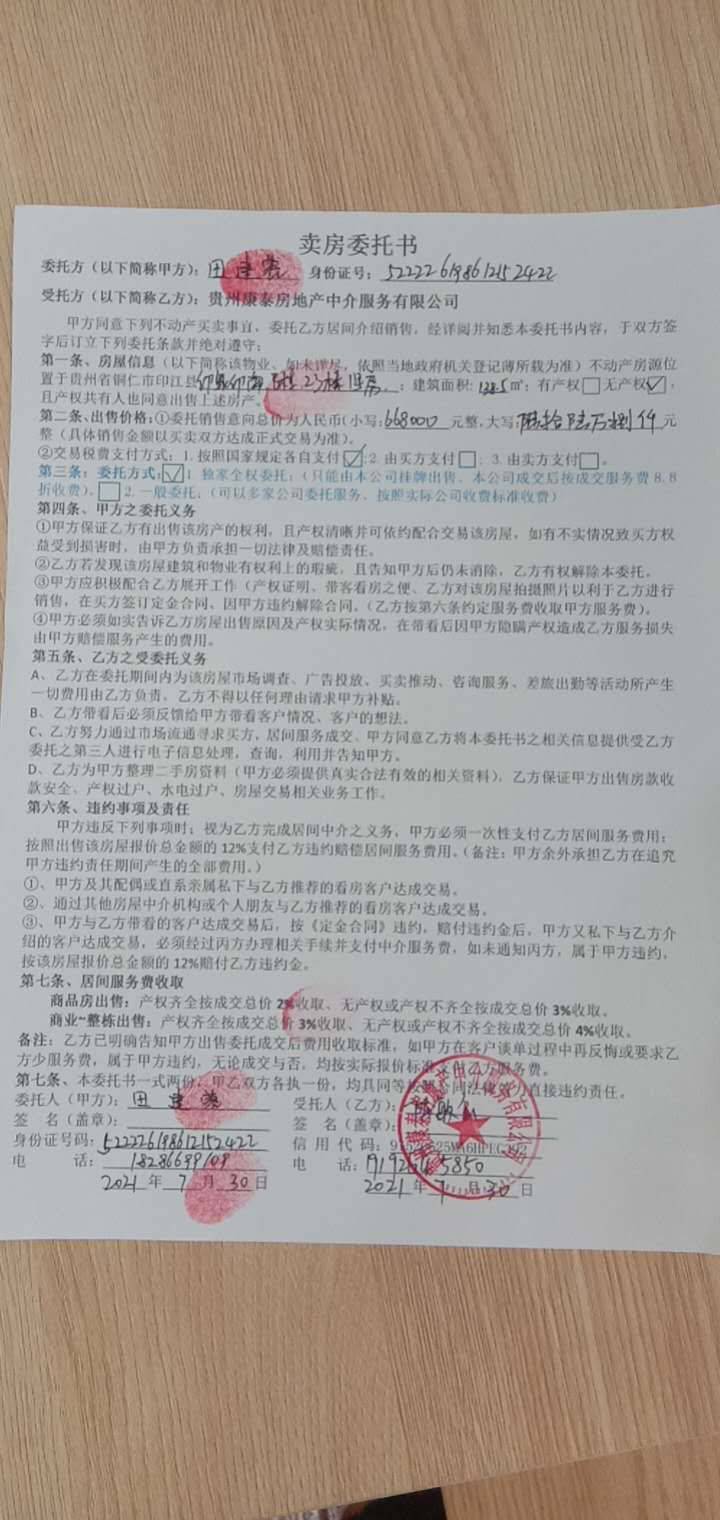 卖房委托书
委托方（以下简称甲方）：田建 身份证号：522226198612152422
受托方（以下简称乙方）：贵州康泰房地产中介服务有限公司
甲方同意下列不动产买卖事宜，委托乙方居间介绍销售，经详阅并知悉本委托书内容，于双方签
字后订立下列委托条款并绝对遵守：
第一条、房屋信息（以下简称该物业、如未详尽，依照当地政府机关登记薄所载为准）不动产房源位
置于贵州省铜仁市印江县 ：建筑面积：128.5㎡；有产权□无产权☑，
且产权共有人也同意出售上述房产。
第二条、出售价格：①委托销售意向总价为人民币（小写：668000 元整，大写：陆拾陆万捌仟元
整（具体销售金额以买卖双方达成正式交易为准）。
②交易税费支付方式：1.按照国家规定各自支付☑；2.由买方支付□；3.由卖方支付□。
第三条：委托方式：☑1 独家全权委托：（只能由本公司挂牌出售、本公司成交后按成交服务费8.8
折收费）。□2.一般委托：（可以多家公司委托服务、按照实际公司收费标准收费）
第四条、甲方之委托义务
①甲方保证乙方有出售该房产的权利，且产权清晰并可依约配合交易该房屋，如有不实情况致买方权
益受到损害时，由甲方负责承担一切法律及赔偿责任。
②乙方若发现该房屋建筑和物业有权利上的瑕疵，且告知甲方后仍未消除，乙方有权解除本委托。
③甲方应积极配合乙方展开工作（产权证明、带客看房之便、乙方对该房屋拍摄照片以利于乙方进行
销售，在买方签订定金合同、因甲方违约解除合同。（乙方按第六条约定服务费收取甲方服务费）。
④甲方必须如实告诉乙方房屋出售原因及产权实际情况，在带看后因甲方隐瞒产权造成乙方服务损失
由甲方赔偿服务产生的费用。
第五条、乙方之受委托义务
A、乙方在委托期间内为该房屋市场调查、广告投放、买卖推动、咨询服务、差旅出勤等活动所产生
一切费用由乙方负责，乙方不得以任何理由请求甲方补贴。
B、乙方带看后必须反馈给甲方带看客户情况、客户的想法。
C、乙方努力通过市场流通寻求买方，居间服务成交。甲方同意乙方将本委托书之相关信息提供受乙方
委托之第三人进行电子信息处理，查询，利用并告知甲方。
D、乙方为甲方整理二手房资料（甲方必须提供真实合法有效的相关资料），乙方保证甲方出售房款收
款安全、产权过户、水电过户、房屋交易相关业务工作。
第六条、违约事项及责任
甲方违反下列事项时：视为乙方完成居间中介之义务，甲方必须一次性支付乙方居间服务费用；
按照出售该房屋报价总金额的12%支付乙方违约赔偿居间服务费用。（备注：甲方余外承担乙方在追究
甲方违约责任期间产生的全部费用。）
①、甲方及其配偶或直系亲属私下与乙方推荐的看房客户达成交易。
②、通过其他房屋中介机构或个人朋友与乙方推荐的看房客户达成交易。
③、甲方与乙方带看的客户达成交易后，按《定金合同》违约，赔付违约金后，甲方又私下与乙方介
绍的客户达成交易，必须经过丙方办理相关手续并支付中介服务费，如未通知丙方，属于甲方违约，
按该房屋报价总金额的12%赔付乙方违约金。
第七条、居间服务费收取
商品房出售：产权齐全按成交总价2%收取、无产权或产权不齐全按成交总价3%收取。
商业~整栋出售：产权齐全按成交总价3%收取、无产权或产权不齐全按成交总价4%收取。
备注：乙方已明确告知甲方出售委托成交后费用收取标准，如甲方在客户谈单过程中再反悔或要求乙
方少服务费，属于甲方违约，无论成交与否，均按实际报价标准支付乙方服务费。
第七条、本委托书一式两份，甲乙双方各执一份，均具同等 直接违约责任。
委托人（甲方）：田建 受托人（乙方）：
签 名（盖章）： 签 名（盖章）：
身份证号码：522226198612152422 信 用 代 码：
电 话：18286699109 电 话：
2021年7月30日 2021年7月30日